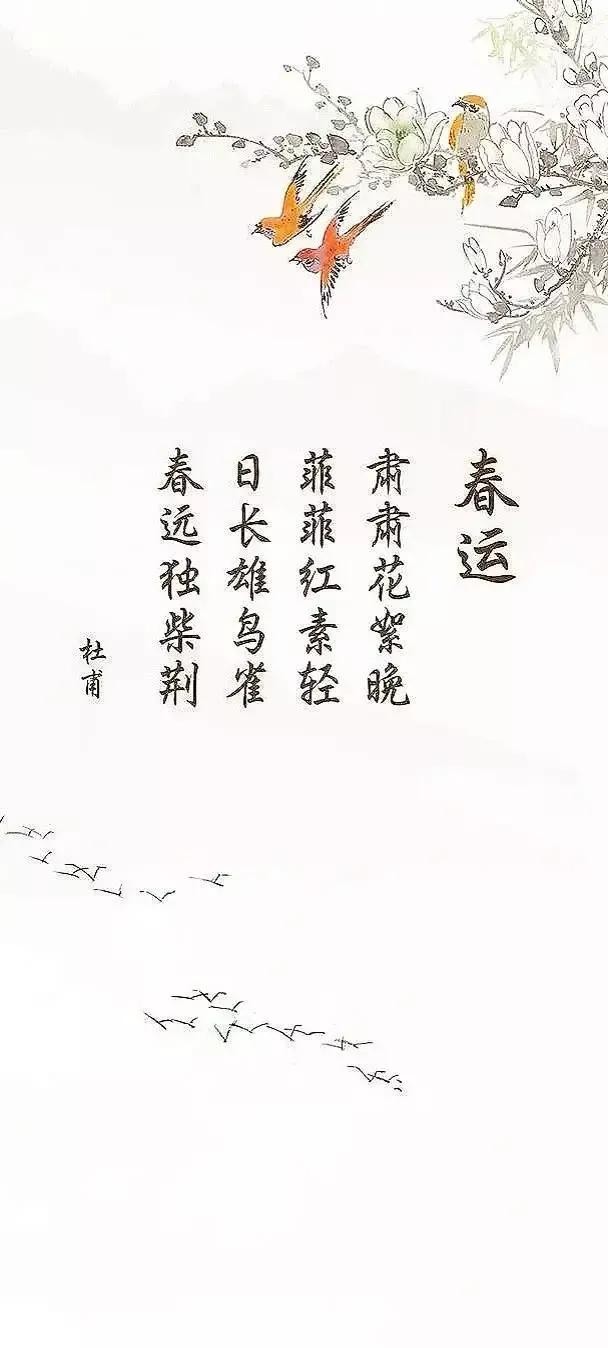 春运
肃肃花絮晚
菲菲红素轻
日长雄鸟雀
春远独柴荆
杜甫